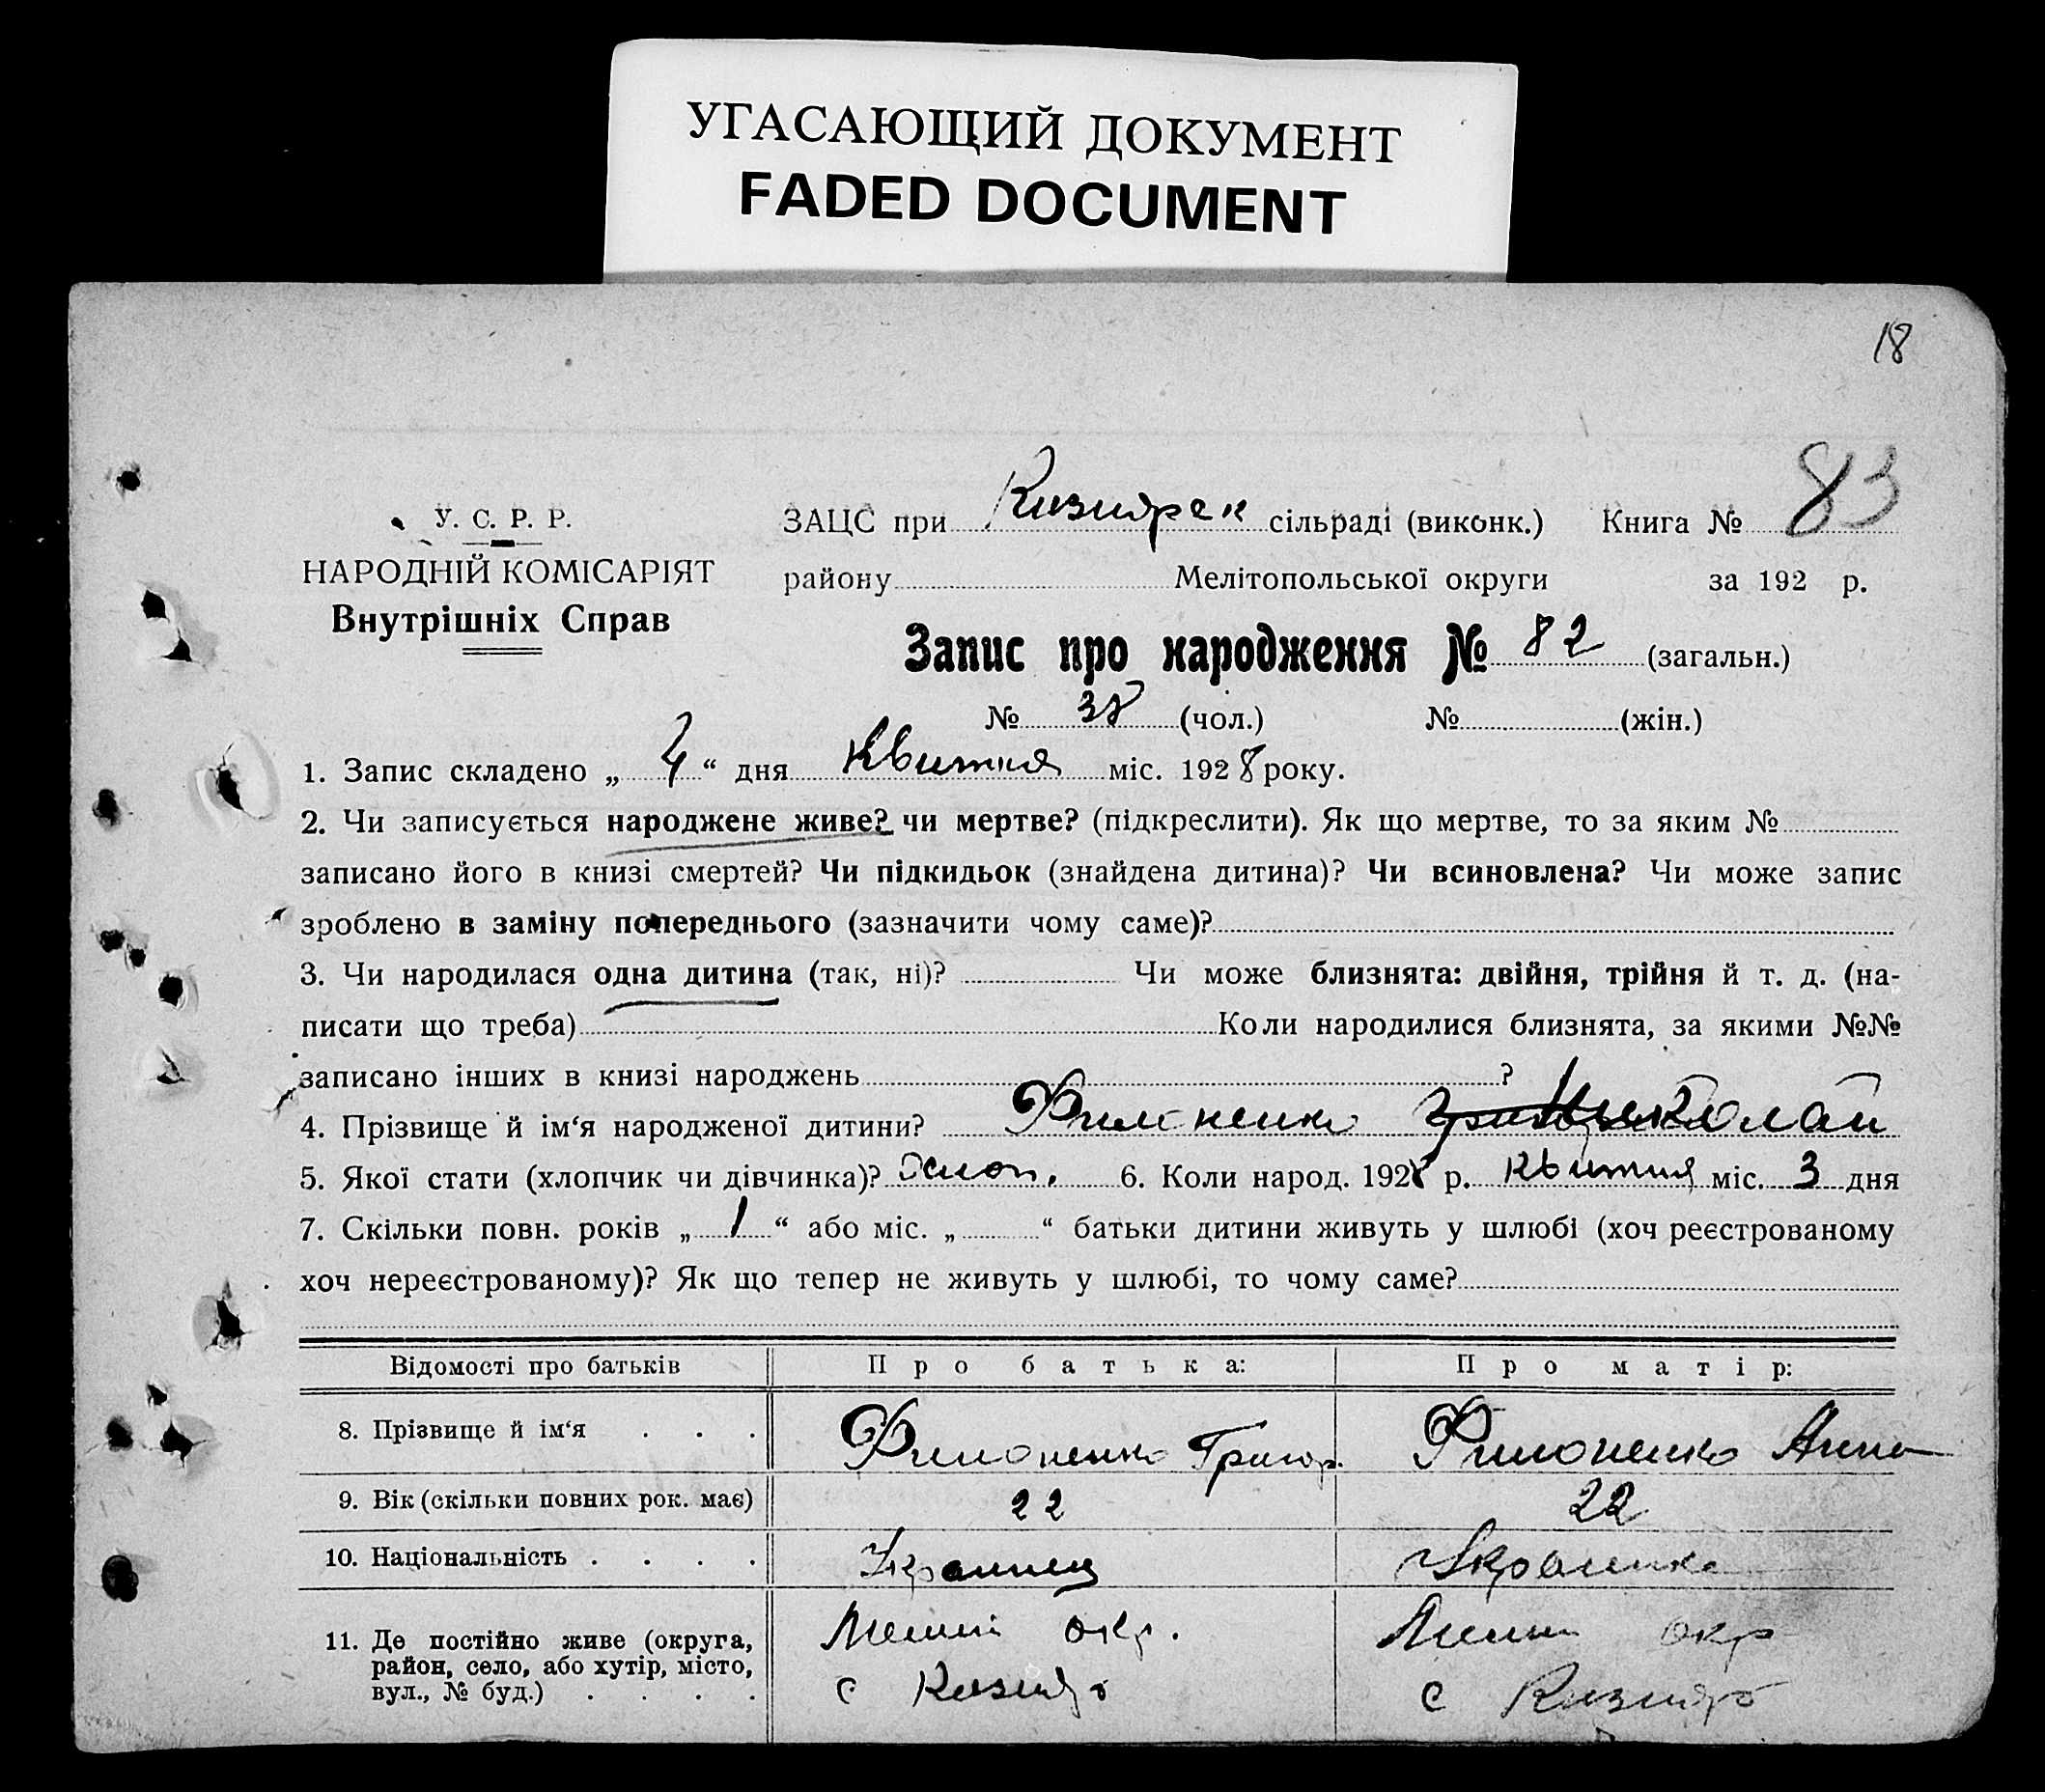 УГАСАЮЩИЙ ДОКУМЕНТ
FADED DOCUMENT
18
У. С. Р. Р.
НАРОДНІЙ КОМІСАРІЯТ
Внутрішніх Справ
ЗАЦС при Кизиярск сільраді (виконк.) Книга № 83
району Мелітопольської округи за 192 р.
Запис про народження № 82 (загальн.)
№ 38 (чол.) № (жін.)
1. Запис складено „ 4 “ дня Квитня міс. 1928 року.
2. Чи записується народжене живе? чи мертве? (підкреслити). Як що мертве, то за яким №
записано його в книзі смертей? Чи підкидьок (знайдена дитина)? Чи всиновлена? Чи може запис
зроблено в заміну попереднього (зазначити чому саме)?
3. Чи народилася одна дитина (так, ні)? Чи може близнята: двійня, трійня й т. д. (на-
писати що треба) Коли народилися близнята, за якими №№
записано інших в книзі народжень ?
4. Прізвище й ім‘я народженої дитини? Филоненко Николай
5. Якої стати (хлопчик чи дівчинка)? 6. Коли народ. 1928 р. квитня міс. 3 дня
7. Скільки повн. років „ 1 “ або міс. „ “ батьки дитини живуть у шлюбі (хоч реєстрованому
хоч нереєстрованому)? Як що тепер не живуть у шлюбі, то чому саме?
Відомості про батьків Про батька: Про матір:
8. Прізвище й ім‘я . . . Филоненко Григор. Филоненко Анна
9. Вік (скільки повних рок. має) 22 22
10. Національність . . . . Украинец Украинка
11. Де постійно живе (округа, окр. окр
район, село, або хутір, місто, с Кизияр с Кизияр
вул., № буд.) . . . .